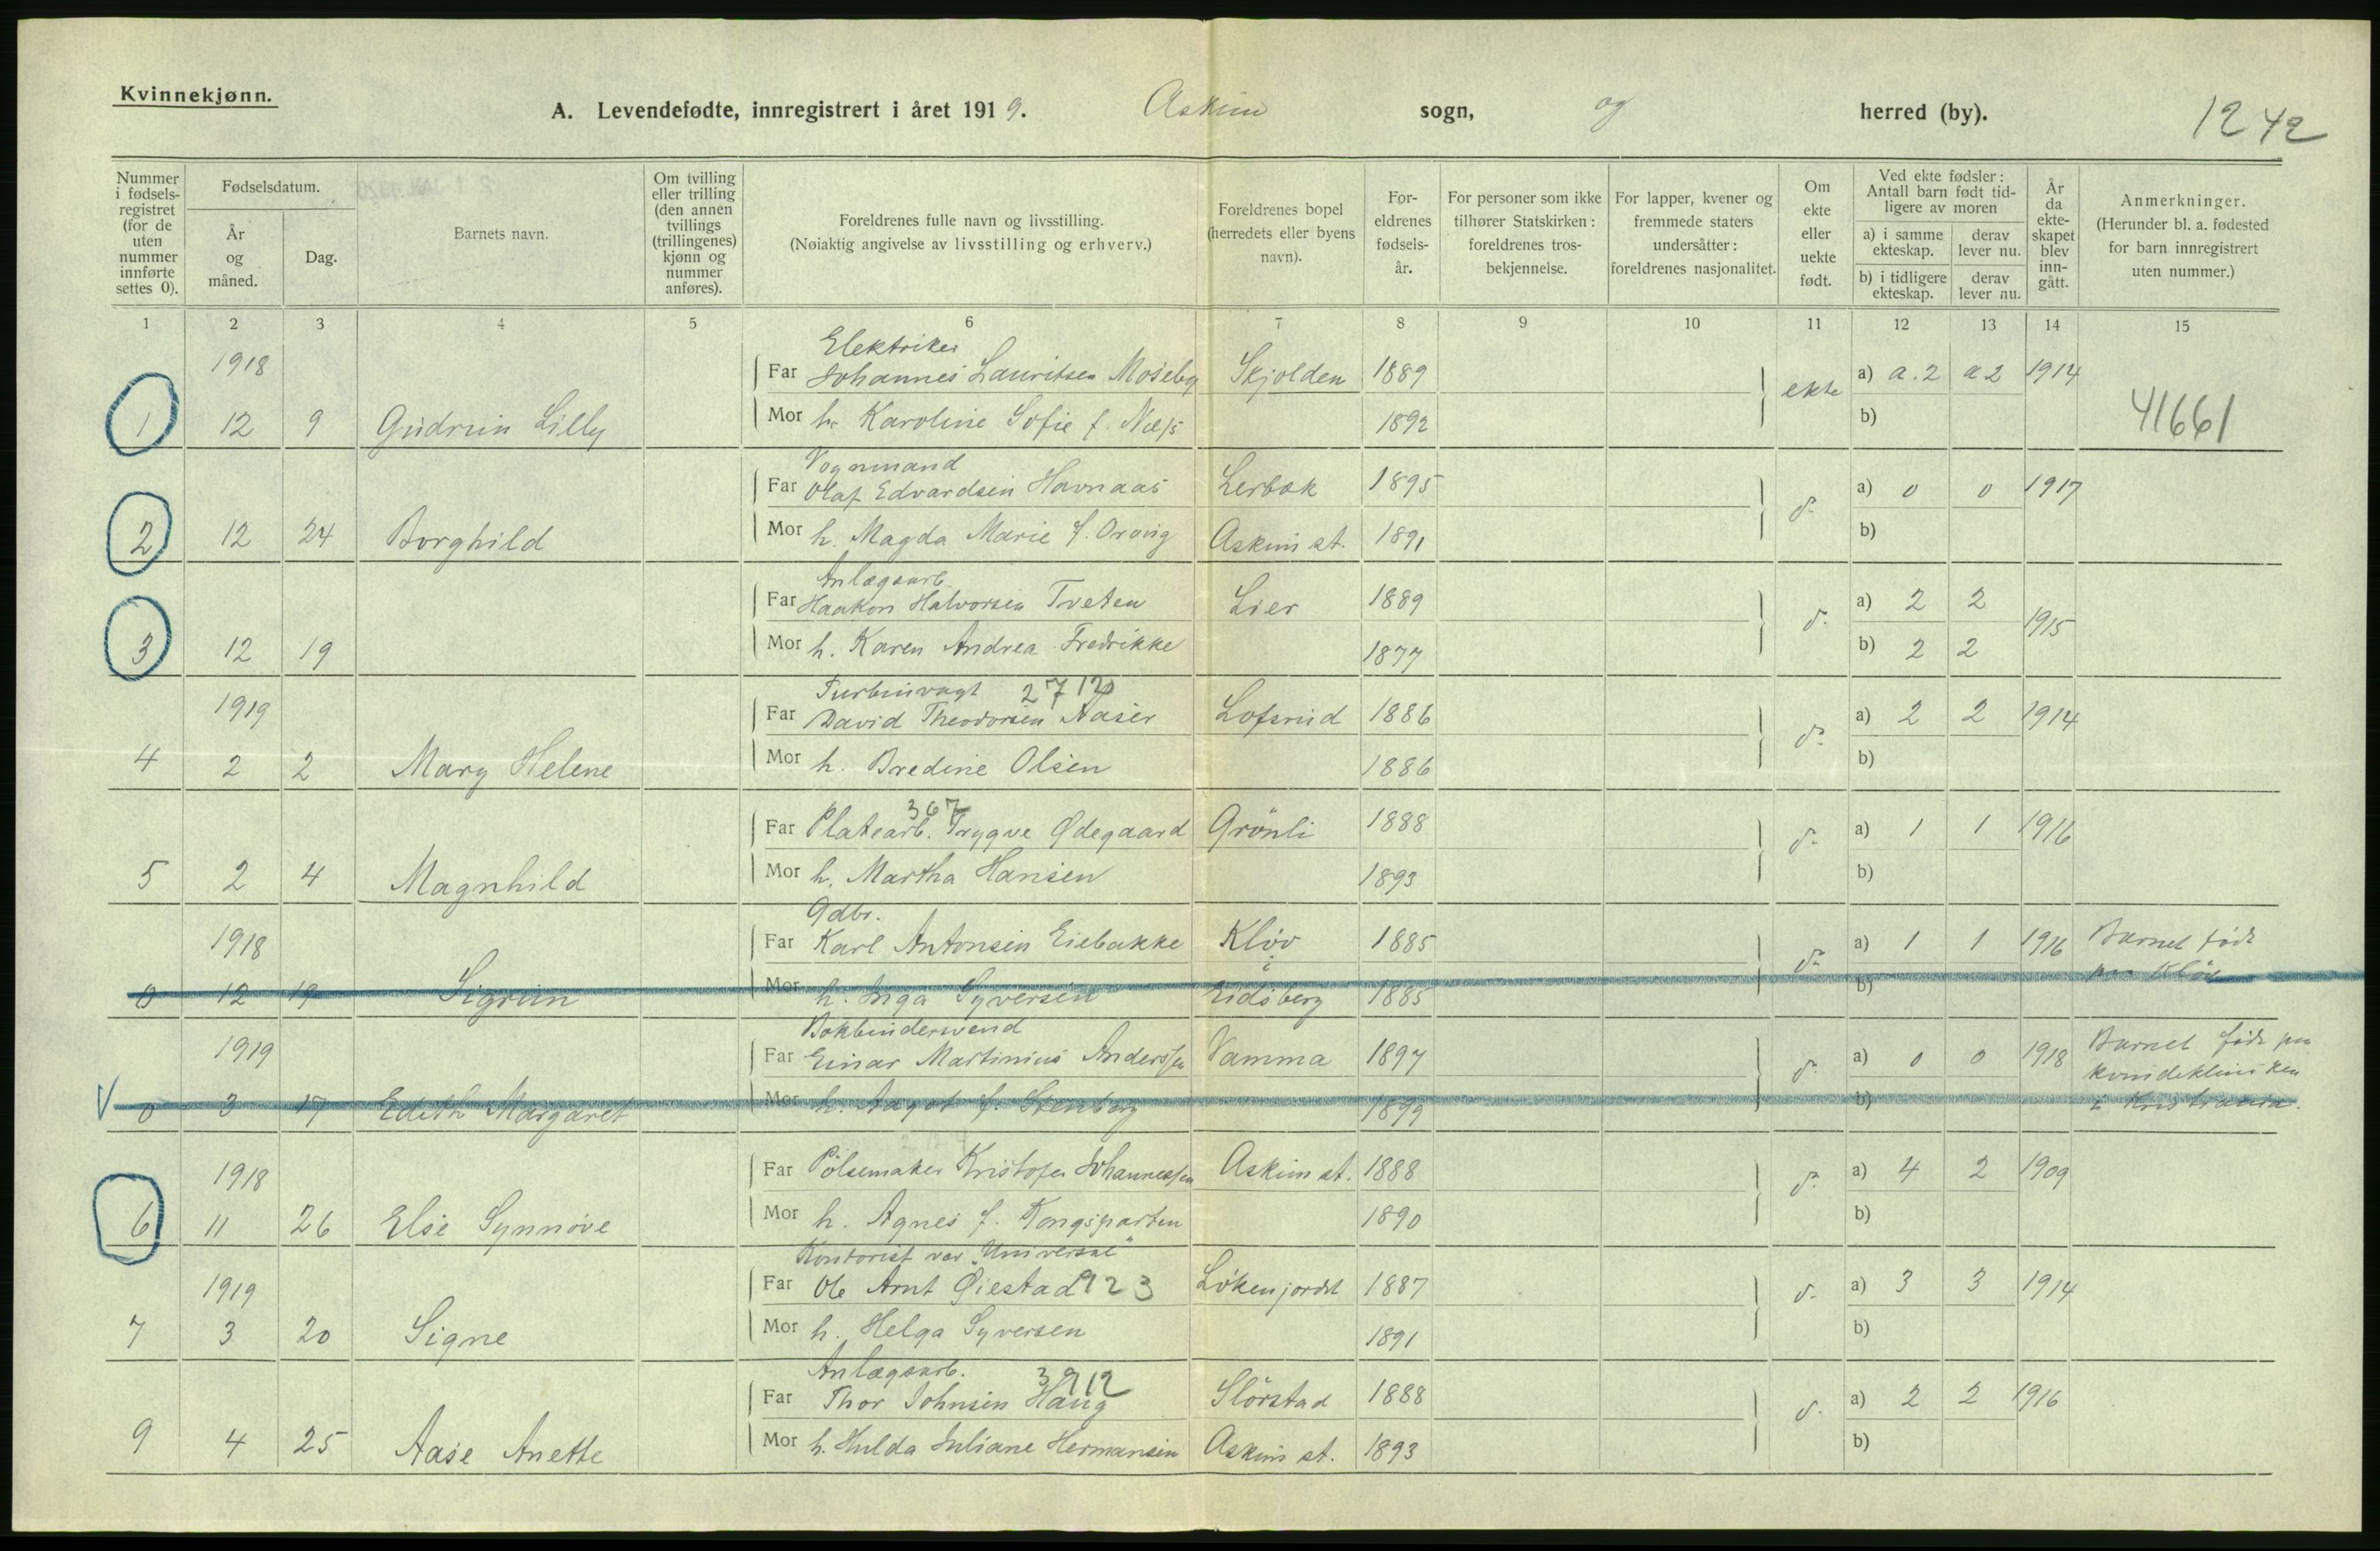 Kvinnekjønn.
A. Levendefødte, innregistrert i året 1919. Askim sogn, og herred (by). 1242
Nummer i fødsels-registret (for de uten nummer innførte settes 0).
Fødselsdatum.
År og måned.
Dag.
Barnets navn.
Om tvilling eller trilling (den annen tvillings (trillingenes) kjønn og nummer anføres).
Foreldrenes fulle navn og livsstilling.
(Nøiaktig angivelse av livsstilling og erhverv.)
Foreldrenes bopel (herredets eller byens navn).
For-eldrenes fødsels-år.
For personer som ikke tilhører Statskirken: foreldrenes tros-bekjennelse.
For lapper, kvener og fremmede staters undersåtter: foreldrenes nasjonalitet.
Om ekte eller uekte født.
Ved ekte fødsler: Antall barn født tid-ligere av moren
a) i samme ekteskap.
derav lever nu.
b) i tidligere ekteskap.
derav lever nu.
År da ekte-skapet blev inn-gått.
Anmerkninger.
(Herunder bl. a. fødested for barn innregistrert uten nummer.)
1 2 3 4 5 6 7 8 9 10 11 12 13 14 15
Elektriker
1918 Far Johannes Lauritsen Moseby Skjolden 1889 ekte a) a.2 a2 1914
1 12 9 Gudrun Lilly Mor h. Karoline Sofie f. Næss 1892 b) 41661
Vognmand
Far Olaf Edvardsen Havnaas Lerbak 1895 d. a) 0 0 1917
2 12 24 Borghild Mor h. Magda Marie f. Askim st. 1891 b)
Anlægsarb.
Far Haakon Halvorsen Tveten Lier 1889 d. a) 2 2 1915
3 12 19 Mor h. Karen Andrea Fredrikke 1877 b) 2 2
Turbinvagt 2712
1919 Far David Theodorsen Naser Lofsrud 1886 d. a) 2 2 1914
4 2 2 Mary Helene Mor h. Bredine Olsen 1886 b)
367
Far Platearb. Trygve Ødegaard Grönli 1888 d. a) 1 1 1916
5 2 4 Magnhild Mor h. Martha Hansen 1893 b)
Gdbr.
1918 Far Karl Antonsen Eiebakke Kløv i 1885 d. a) 1 1 1916 Barnet född
0 12 19 Sigrun Mor h. Inga Syversen Eidsberg 1885 b) paa Kløv
Bokbindersvend
1919 Far Einar Martinius Anderssen Vamma 1897 d. a) 0 0 1918 Barnet född paa
kvindekliniken
0 3 17 Edith Margaret Mor h. Aagot f. Stenberg 1899 b) i Kristiania.
1918 Far Pölsemaker Kristofer Johannessen Askim st. 1888 d. a) 4 2 1909
6 11 26 Else Synnöve Mor h. Agnes f. Kongsparten 1890 b)
Kontorist ved "Universal"
1919 Far Ole Arnt Øiestad 923 Lökenjordet 1887 d. a) 3 3 1914
7 3 20 Signe Mor h. Helga Syversen 1891 b)
Anlægsarb. 3912
Far Thor Johnsen Haug Slörstad 1888 d. a) 2 2 1916
9 4 25 Aase Anette Mor h. Hulda Juliane Hermansen Askim st. 1893 b)